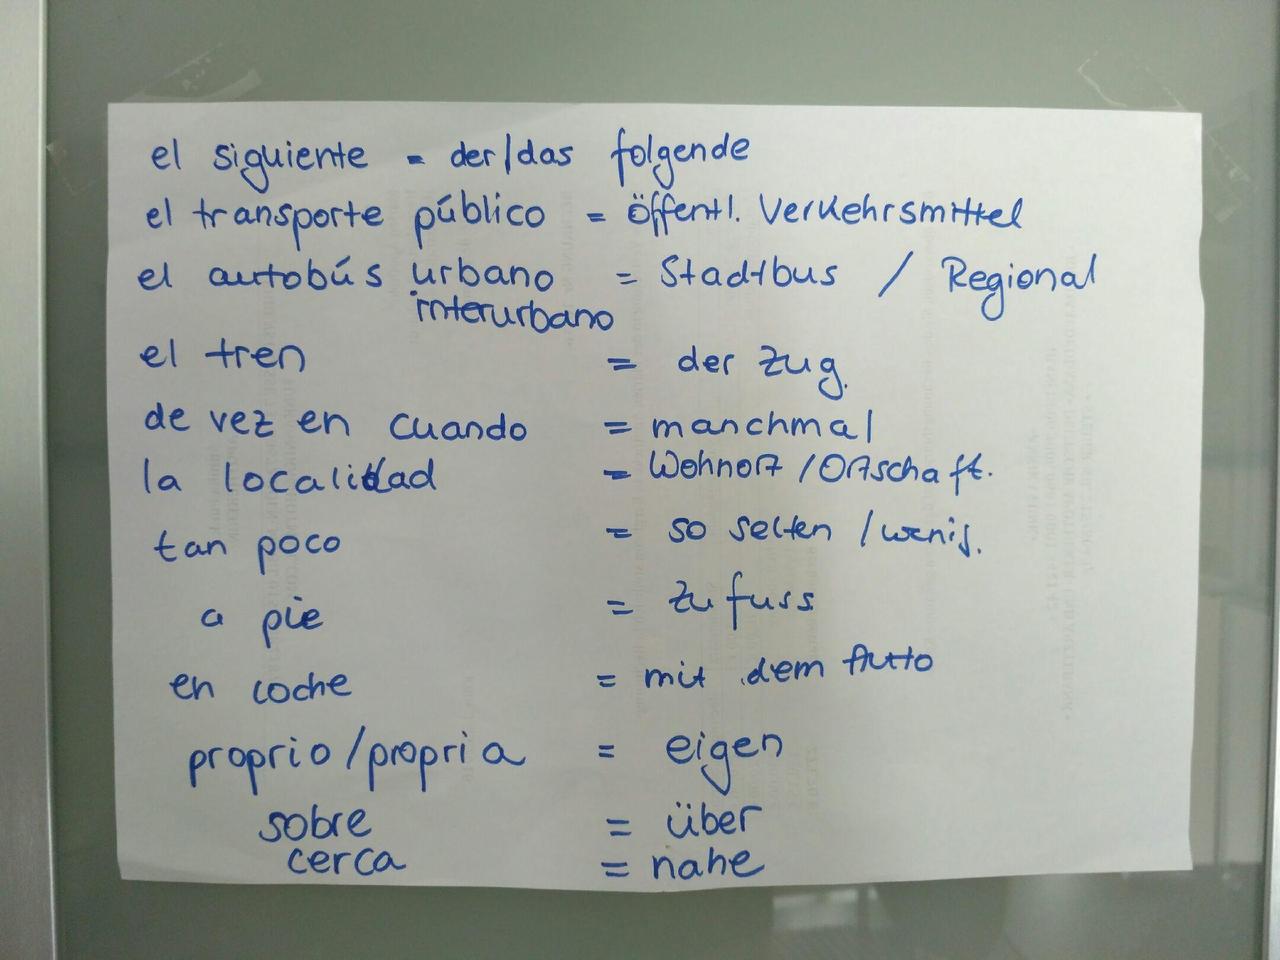 el siguiente = der/das folgende
el transporte público = öffentl. Verkehrsmittel
el autobús urbano = Stadtbus / Regional
interurbano
el tren = der Zug.
de vez en cuando = manchmal
la localidad = Wohnort / Ortschaft.
tan poco = so selten / wenig.
a pie = zu fuss
en coche = mit dem Auto
proprio/propria = eigen
sobre = über
cerca = nahe